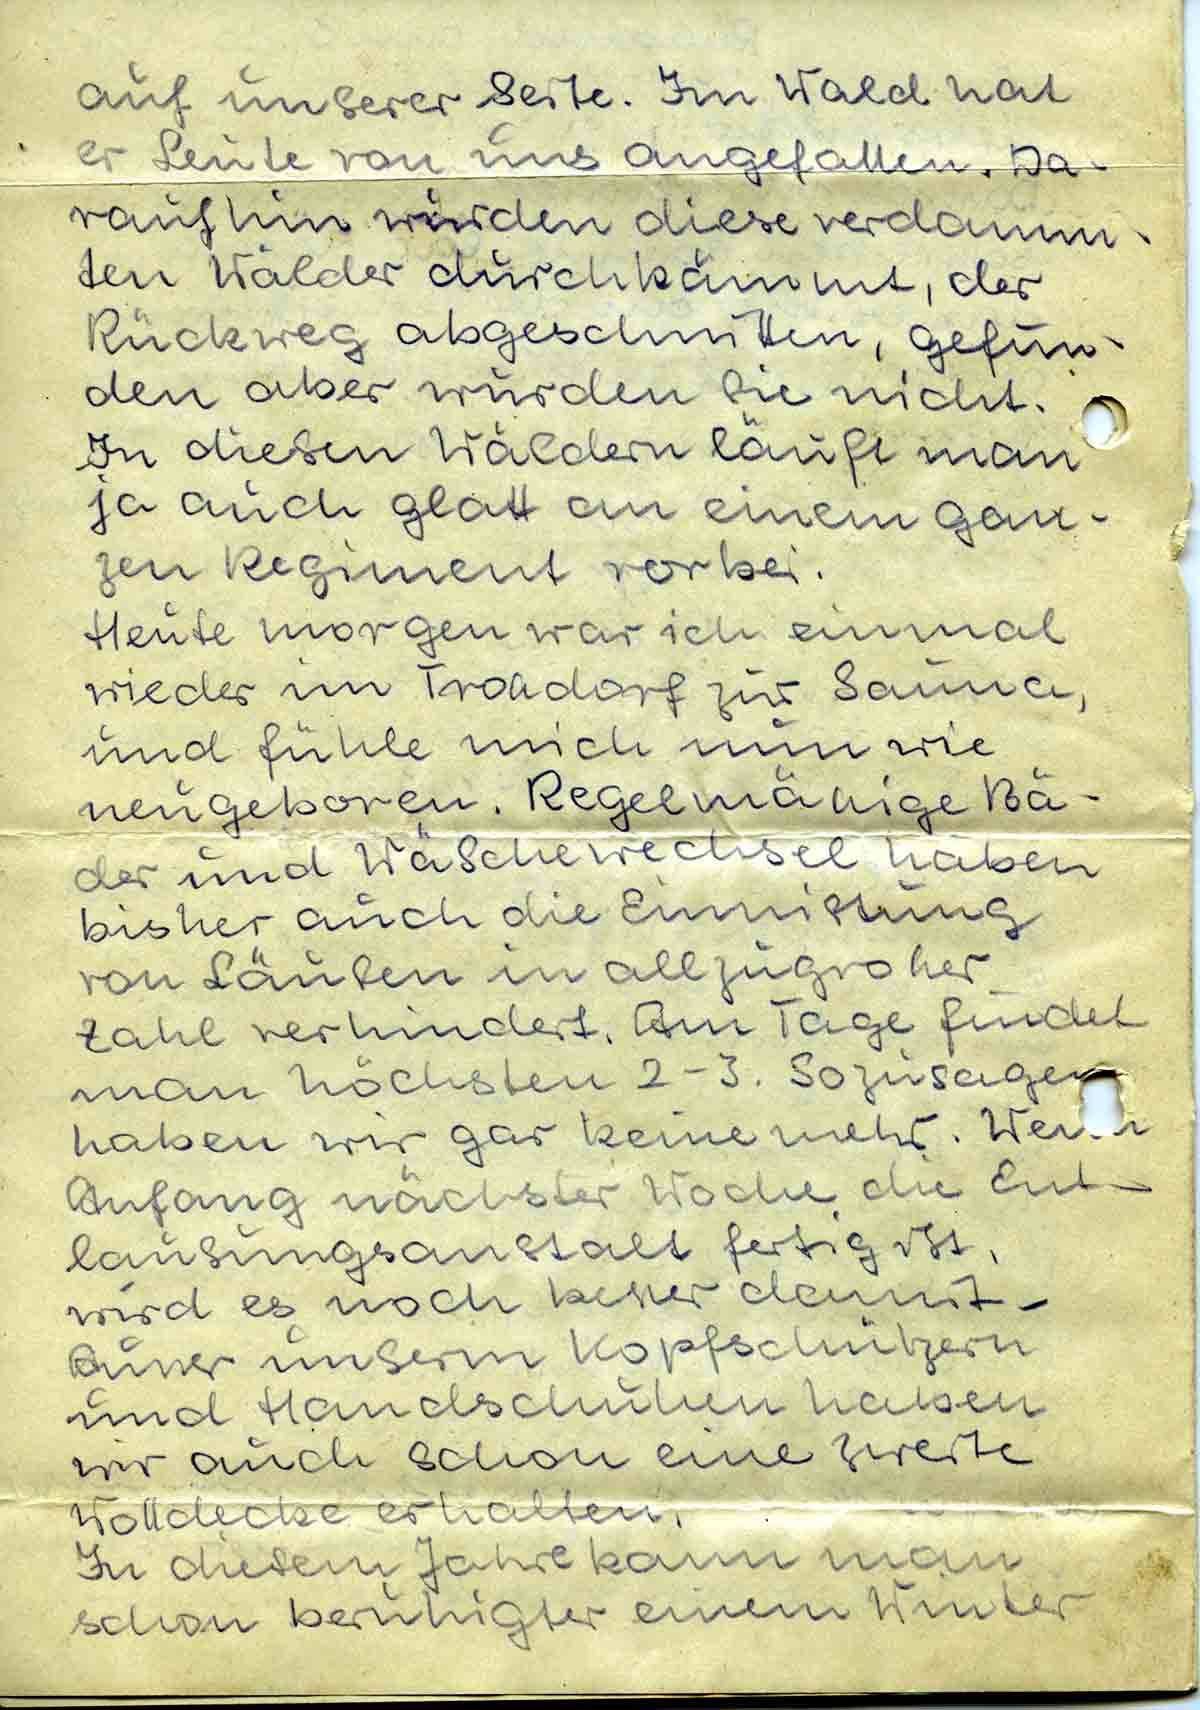 auf unserer Seite. Im Wald hat
er Leute von uns angefallen. Da-
raufhin wurden diese verdamm-
ten Wälder durchkämmt, der
Rückweg abgeschnitten, gefun-
den aber wurden sie nicht.
In diesen Wäldern läuft man
ja auch glatt an einem gan-
zen Regiment vorbei.
Heute morgen war ich einmal
wieder im Troßdorf zur Sauna,
und fühle mich nun wie
neugeboren. Regelmäßige Bä-
der und Wäschewechsel haben
bisher auch die Einnistung
von Läusen in allzugroßer
Zahl verhindert. Am Tage findet
man höchsten 2-3. Sozusagen
haben wir gar keine mehr. Wenn
Anfang nächster Woche die Ent-
lausungsanstalt fertig ist,
wird es noch besser damit.
Außer unserm Kopfschützern
und Handschuhen haben
wir auch schon eine zweite
Wolldecke erhalten.
In diesem Jahre kann man
schon beruhigter einem Winter